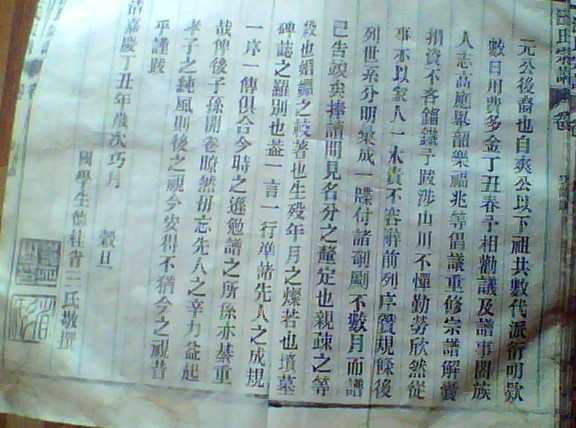 氏宗譜
元公後裔也自爽公以下祖共數代派衍明歟
數日用費多金丁丑春予相勸議及譜事闔族
人志高應舉韶樂福兆等倡議重修宗譜解囊
捐資不吝錙銖予跋涉山川不憚勤勞欣然從
事亦以家人一本責不容辭前列序贊規條後
列世系分明彙成一牒付諸剞劂不數月而譜
已告竣矣捧讀間見名分之釐定也親疎之等
殺也婚姻之校著也生歿年月之燦若也墳墓
碑誌之羅別也葢一言一行準諸先人之成規
一序一傳俱合今時之遜勉譜之所係亦綦重
哉俾後子孫開卷瞭然切忘先人之辛力益起
孝子之純風則後之視今安得不猶今之視昔
乎謹跋
清嘉慶丁丑年歲次巧月 穀旦
國學生 氏敬撰